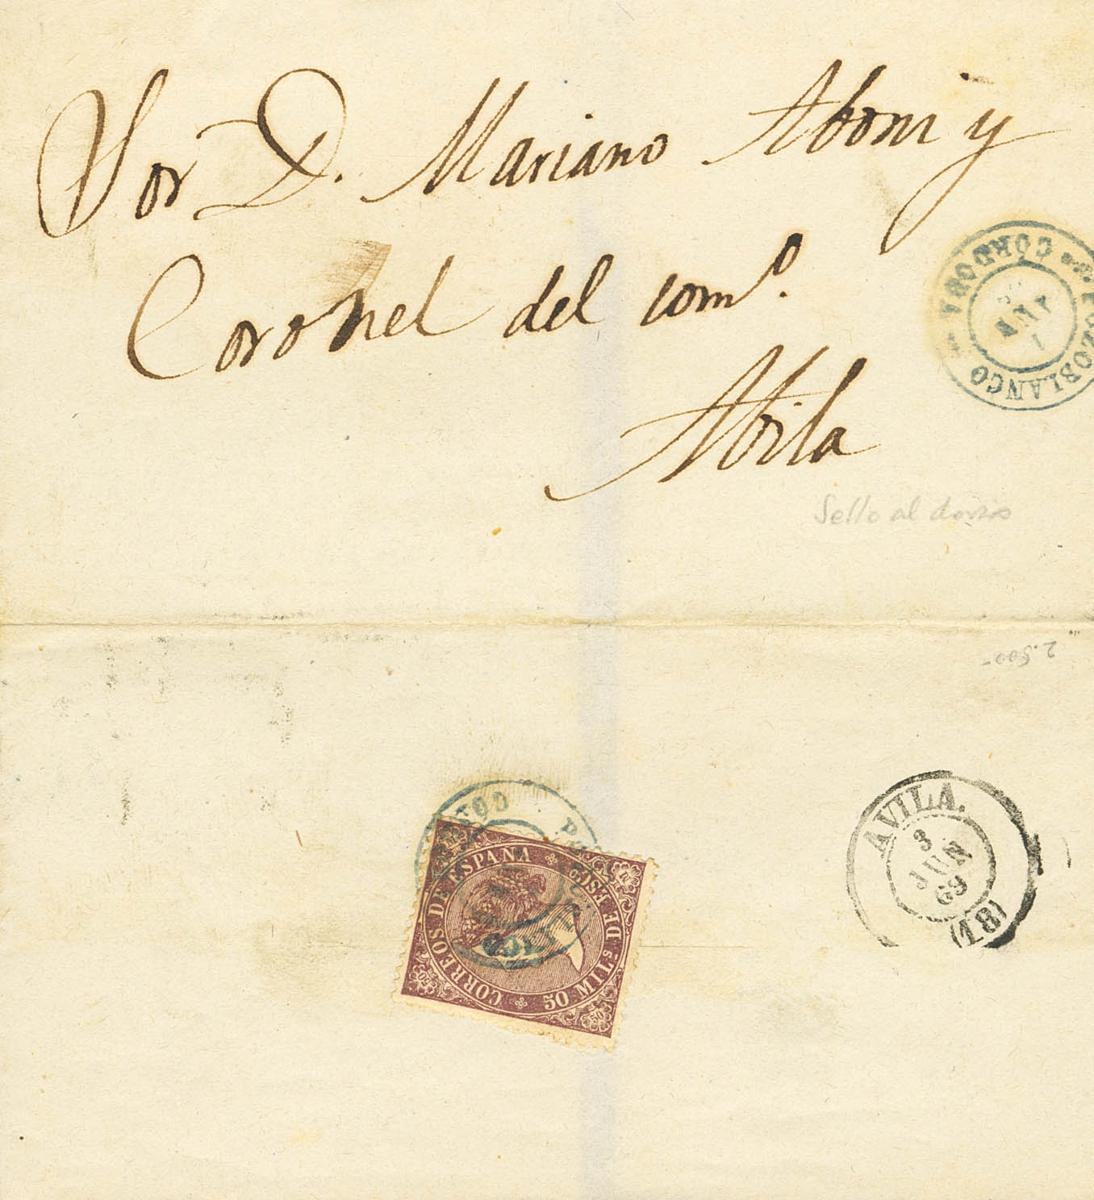 Sor D. Mariano Aboni y
Coronel del como.
POZOBLANCO
CORDOBA
1
JUN
Abila
Sello al dorso
2.500-
AVILA.
3
JUN
69
(18)
CORREOS DE ESPAÑA
50 MILs DE ESCo
50